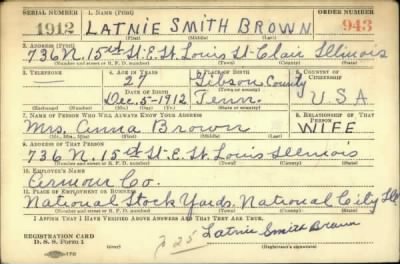 SERIAL NUMBER 1. NAME (Print) ORDER NUMBER
1912 LATNIE SMITH BROWN 943
(First) (Middle) (Last)
2. ADDRESS (Print)
736 N. 15th St. E. St. Louis St. Clair Illinois
(Number and street or R. F. D. number) (Town) (County) (State)
3. TELEPHONE 4. AGE IN YEARS 5. PLACE OF BIRTH 6. COUNTRY OF CITIZENSHIP
— 27 Gibson County
DATE OF BIRTH (Town or county)
Dec. 5-1912 Tenn. U S A
(Exchange) (Number) (Mo.) (Day) (Yr.) (State or country)
7. NAME OF PERSON WHO WILL ALWAYS KNOW YOUR ADDRESS 8. RELATIONSHIP OF THAT PERSON
Mrs. Anna Brown WIFE
(Mr., Mrs., Miss) (First) (Middle) (Last)
9. ADDRESS OF THAT PERSON
736 N. 15th St. E. St. Louis Illinois
(Number and street or R. F. D. number) (Town) (County) (State)
10. EMPLOYER'S NAME
Armour Co.
11. PLACE OF EMPLOYMENT OR BUSINESS
National Stock Yards. National City Ill
(Number and street or R. F. D. number) (Town) (County) (State)
I AFFIRM THAT I HAVE VERIFIED ABOVE ANSWERS AND THAT THEY ARE TRUE.
REGISTRATION CARD
D. S. S. Form 1 Latnie Smith Brown
(Registrant's signature)